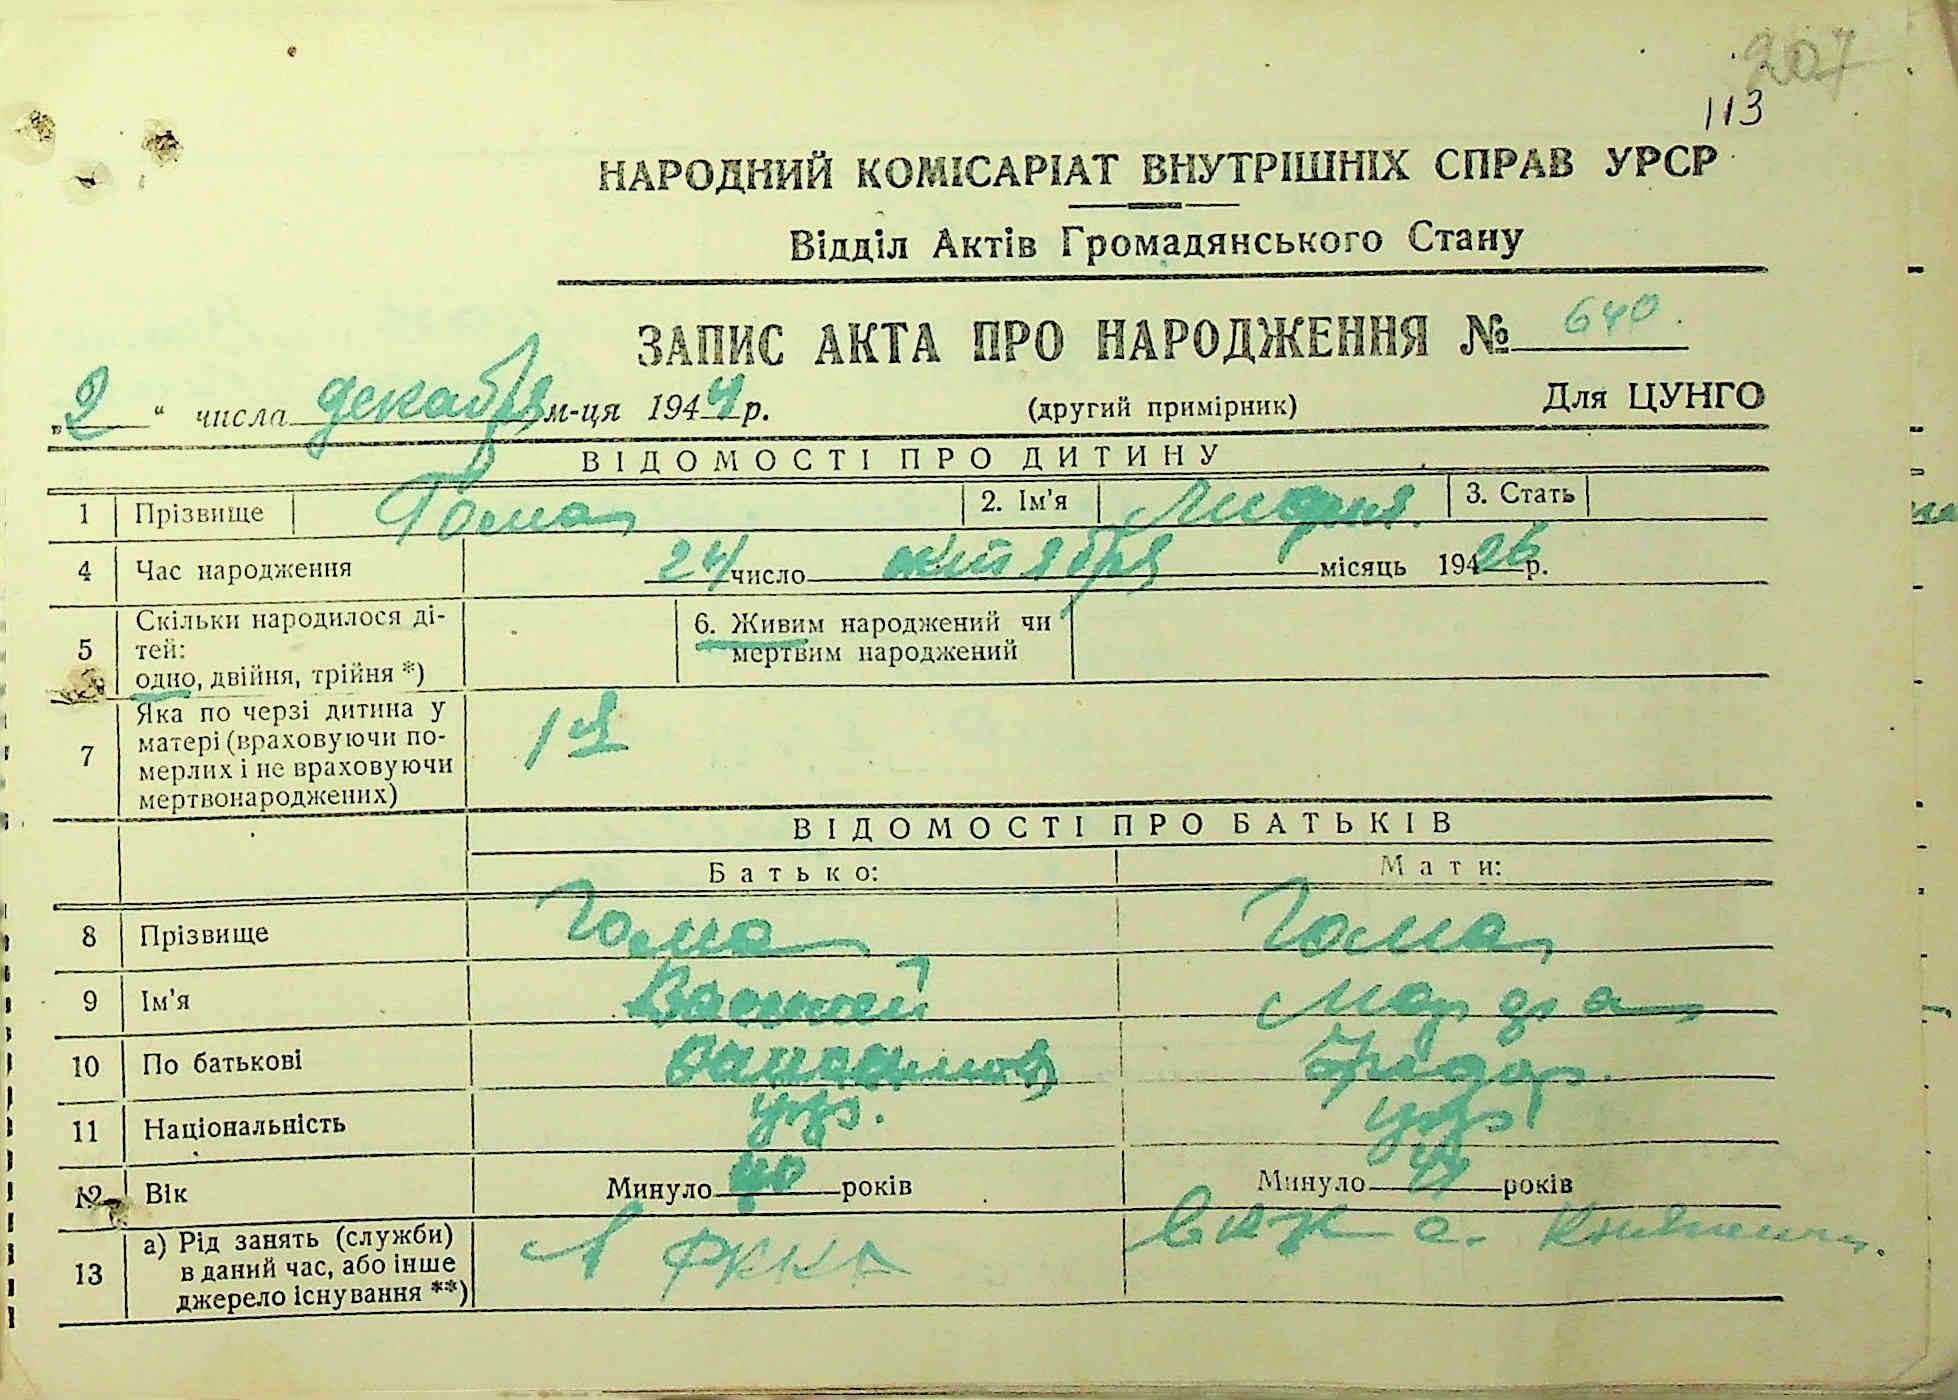 207
113
НАРОДНИЙ КОМІСАРІАТ ВНУТРІШНІХ СПРАВ УРСР
Відділ Актів Громадянського Стану
ЗАПИС АКТА ПРО НАРОДЖЕННЯ № 640.
„2“ числа декабря м-ця 1944 р. (другий примірник) Для ЦУНГО
ВІДОМОСТІ ПРО ДИТИНУ
1 Прізвище Гома 2. Ім'я Лидия 3. Стать
4 Час народження 24 число октября місяць 1926 р.
5 Скільки народилося ді-
тей:
одно, двійня, трійня *)
6. Живим народжений чи
мертвим народжений
7 Яка по черзі дитина у
матері (враховуючи по-
мерлих і не враховуючи
мертвонароджених)
1я
ВІДОМОСТІ ПРО БАТЬКІВ
Батько: Мати:
8 Прізвище Гома Гома
9 Ім'я
10 По батькові
11 Національність укр. укр.
12 Вік Минуло 40 років Минуло 44 років
13 а) Рід занять (служби)
в даний час, або інше
джерело існування **)
в РККА
в к-зе с.